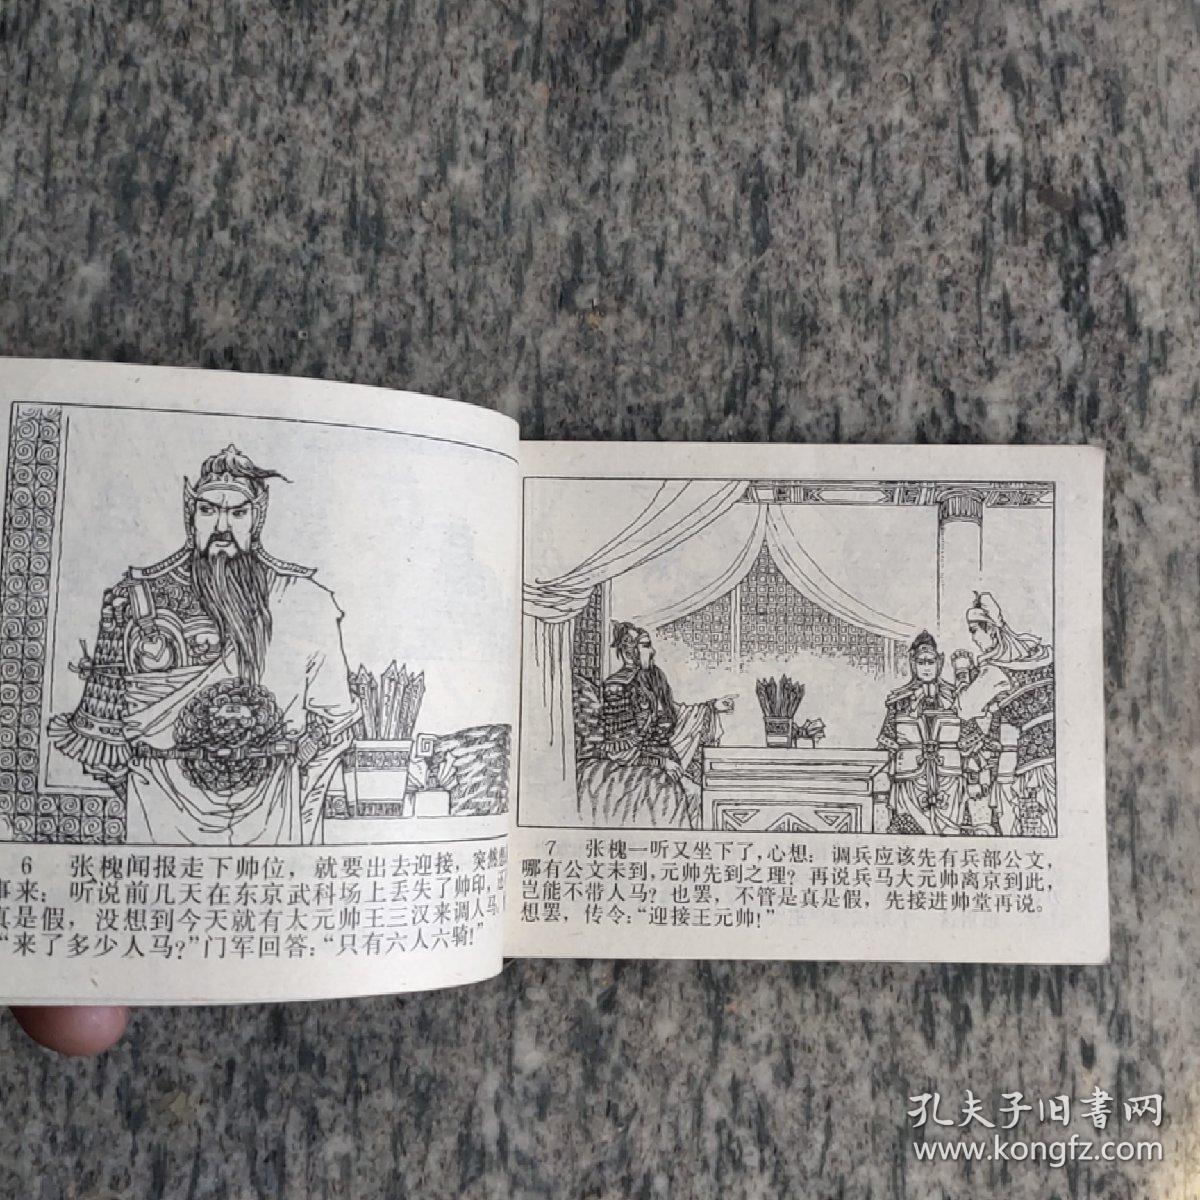 6 张槐闻报走下帅位，就要出去迎接，突然想
事来：听说前几天在东京武科场上丢失了帅印，
真是假，没想到今天就有大元帅王三汉来调人马
“来了多少人马?”门军回答：“只有六人六骑!”
7 张槐一听又坐下了，心想：调兵应该先有兵部公文，
哪有公文未到，元帅先到之理？再说兵马大元帅离京到此，
岂能不带人马？也罢，不管是真是假，先接进帅堂再说。
想罢，传令：“迎接王元帅!”
孔夫子旧书网
www.kongfz.com